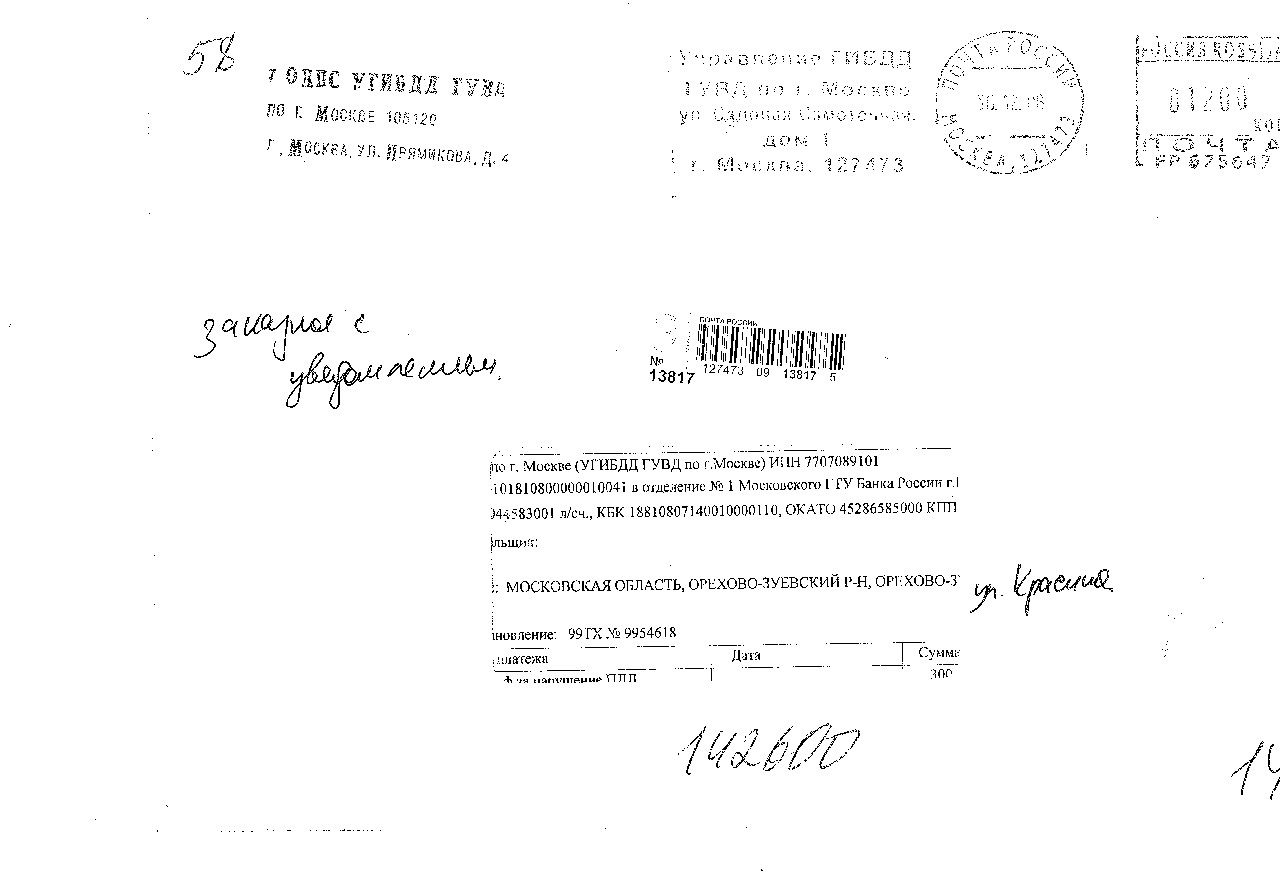 58
7 ОДПС УГИБДД ГУВД
ПО Г. МОСКВЕ 105120
Г. МОСКВА, УЛ. ПРЯМИКОВА, Д. 4
Управление ГИБДД
ГУВД по г. Москве
ул. Садовая Самотечная,
дом 1
г. Москва, 127473
ПОЧТА РОССИИ
МОСКВА, 127473
РОССИЯ ROSSIJA
01200
КОП
ПОЧТА
FP 675647
заказное с
уведомлением.
ПОЧТА РОССИИ
№
13817
127473 09 13817 5
по г. Москве (УГИБДД ГУВД по г.Москве) ИНН 7707089101
101810800000010041 в отделение № 1 Московского ГТУ Банка России г.
044583001 л/сч., КБК 18810807140010000110, ОКАТО 45286585000 КПП
льщик:
: МОСКОВСКАЯ ОБЛАСТЬ, ОРЕХОВО-ЗУЕВСКИЙ Р-Н, ОРЕХОВО-З
ул. Красина
новление: 99ТХ № 9954618
платежа Дата Сумма
ф за нарушение ПДД 300
142600
14